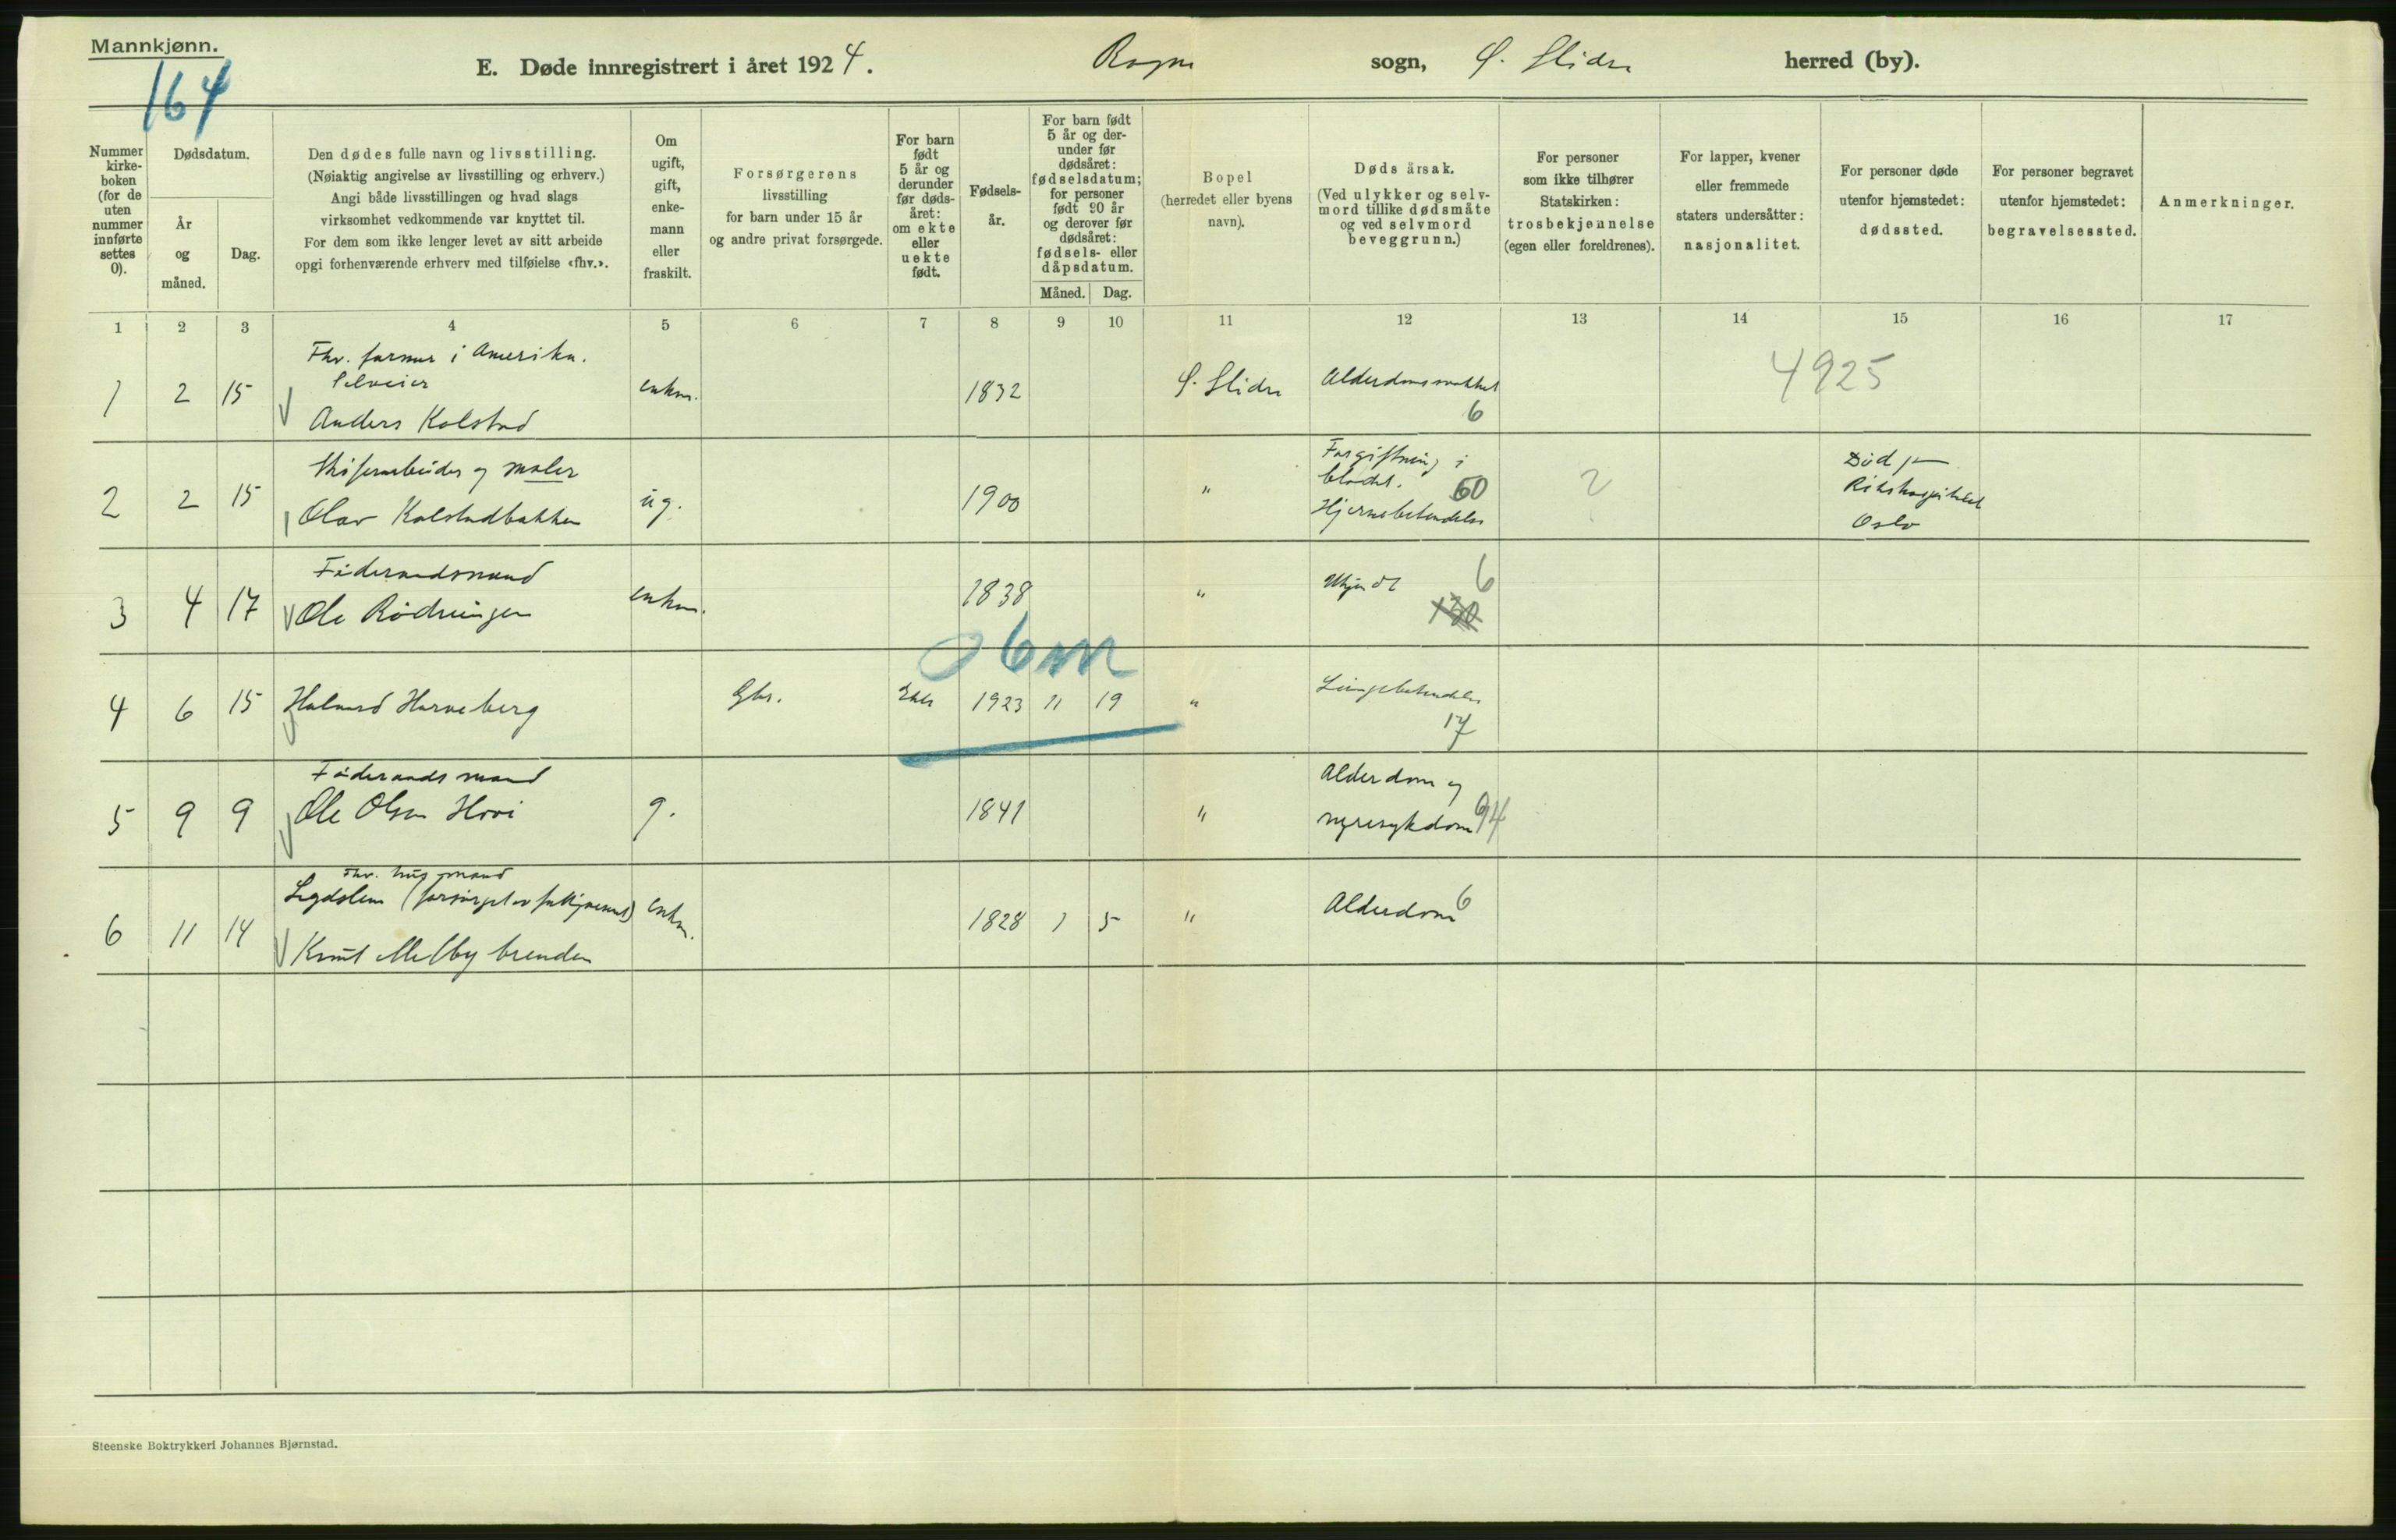 Mannkjønn.
164
E. Døde innregistrert i året 1924. Rogne sogn, Ø. Slidre herred (by).
Nummer kirke-boken (for de uten nummer innførte settes 0).
Dødsdatum.
År og måned.
Dag.
Den dødes fulle navn og livsstilling.
(Nøiaktig angivelse av livsstilling og erhverv.)
Angi både livsstillingen og hvad slags
virksomhet vedkommende var knyttet til.
For dem som ikke lenger levet av sitt arbeide
opgi forhenværende erhverv med tilføielse «fhv.».
Om ugift, gift, enke-mann eller fraskilt.
Forsørgerens
livsstilling
for barn under 15 år
og andre privat forsørgede.
For barn født 5 år og derunder før døds-året: om ekte eller uekte født.
Fødsels-år.
For barn født 5 år og der-under før dødsåret: fødselsdatum; for personer født 90 år og derover før dødsåret: fødsels- eller dåpsdatum.
Måned. Dag.
Bopel
(herredet eller byens
navn).
Døds årsak.
(Ved ulykker og selv-
mord tillike dødsmåte
og ved selvmord
beveggrunn.)
For personer
som ikke tilhører
Statskirken:
trosbekjennelse
(egen eller foreldrenes).
For lapper, kvener
eller fremmede
staters undersåtter:
nasjonalitet.
For personer døde
utenfor hjemstedet:
dødssted.
For personer begravet
utenfor hjemstedet:
begravelsessted.
Anmerkninger.
1 2 3 4 5 6 7 8 9 10 11 12 13 14 15 16 17
Fhv. farmer i Amerika.
Selveier
1 2 15 Anders Kolstad enkm. 1832 Ø. Slidre Alderdomssvakhet 6 4925
Skiferarbeider og maler
2 2 15 Olav Kolstadbakken ug. 1900 " Forgiftning i
blodet. 60
Hjernebetendelse
2
Død på
Rikshospitalet
Oslo
Føderaadsmand
3 4 17 Ole Rødningen enkm. 1838 " Ukjendt 6
130
06m
4 6 15 Halvard Harneberg Gbr. Ekte 1923 11 19 " Lungebetendelse
17
Føderaadsmand
5 9 9 Ole Olsen Hovi g. 1841 " Alderdom og
nyresykdom 94
Fhv. husmand
Legdslem (forsørget av fattigvesenet) enkm.
6 11 14 Knut Melbybrenden 1828 1 5 " Alderdom 6
Steenske Boktrykkeri Johannes Bjørnstad.